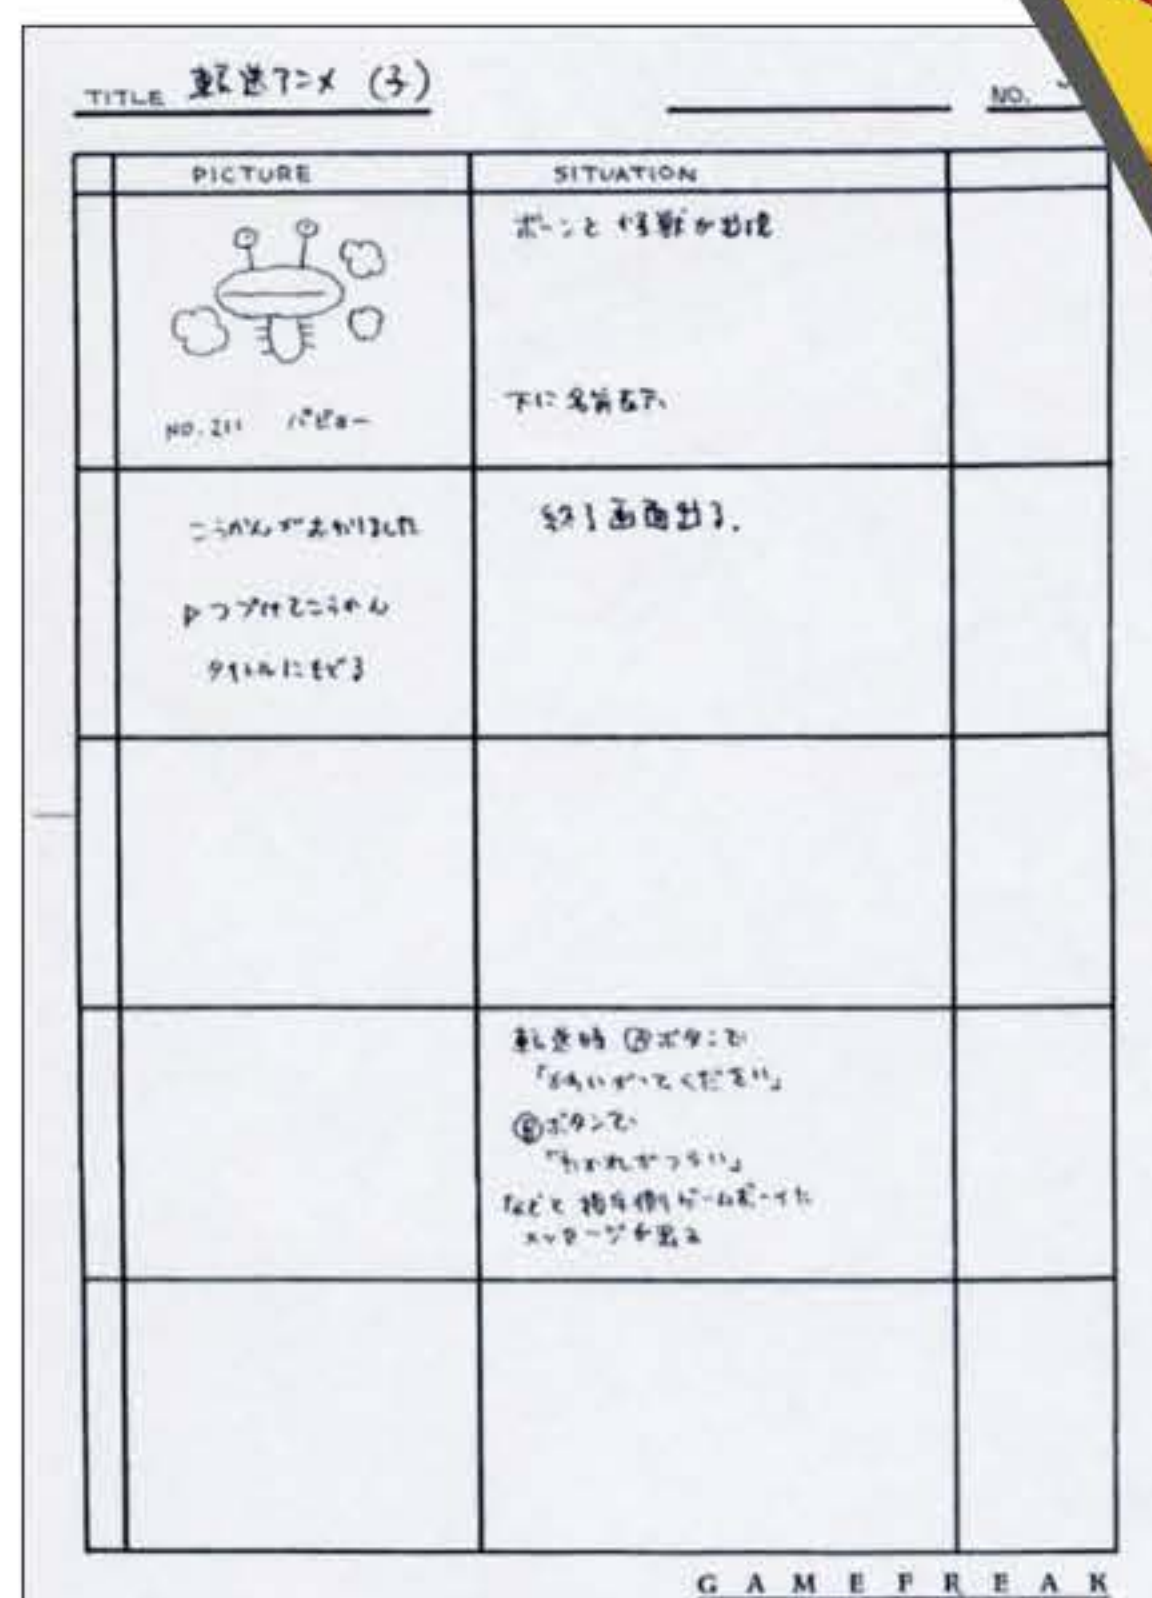 TITLE 転送アニメ (子)
NO.
PICTURE
SITUATION
ボーンと怪獣が出現
下に名前表示
NO.211 パピョー
こうかんがおわりました
▷つづけてこうかん
タイトルにもどる
終了画面出る.
転送時 Ⓐボタンで
「かわいがってください」
Ⓑボタンで
「わかれがつらい」
などと相手側ゲームボーイに
メッセージが出る
GAMEFREAK